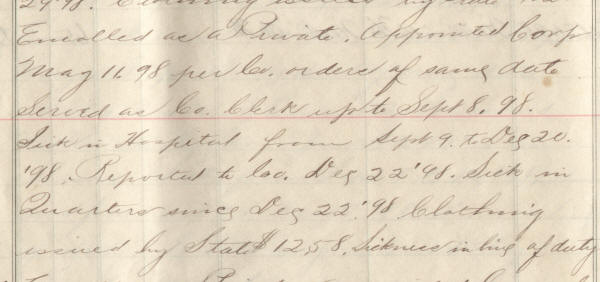 29 '98. Clothing issued by
Enrolled as a Private. Appointed Corp
May 11, 98 per Co. orders of same date
Served as Co. Clerk up to Sept 8, 98.
Sick in Hospital from Sept 9. to Dec 20.
'98. Reported to Co. Dec 22 '98. Sick in
Quarters since Dec 22, '98 Clothing
issued by State $12,58. Sickness in line of duty